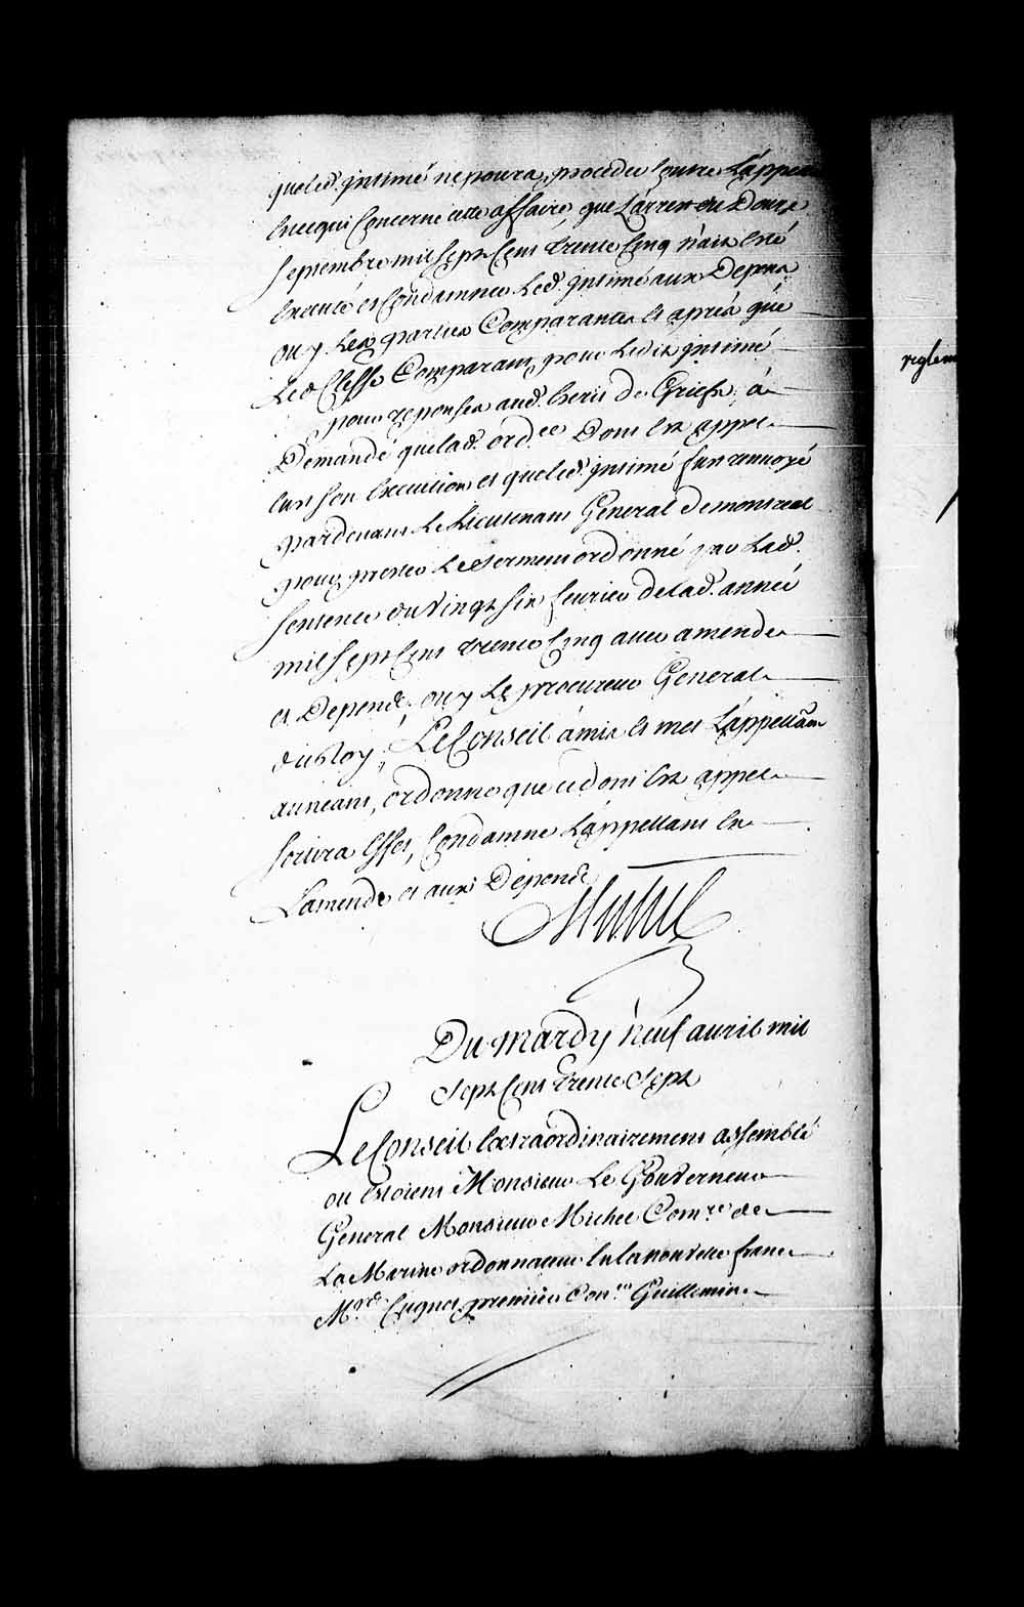 queled. intimé ne poura proceder Contre L'appellant
En ce qui Concerne cette affaire, que L'arrest du Douze
septembre mil sept Cent trente Cinq n'ait Esté
Executé et Condamner Led. intimé aux Depens
ouy Les parties Comparantes Et aprés que
Led. Comparant pour Ledit intimé
pour reponses aud. Ecrit de Griefs, á
Demandé que lad. ordce. Dont Est appel
Eust son Execution et queled. intimé fut renvoyé
pardevant Le Lieutenant General de montreal
pour prester Le serment ordonné par Lad.
sentence du Vingt six feurier de lad. année
mil sept Cent trente Cinq avec amende
et Depens, ouy Le procureur General
du Roy; Le Conseil á mis Et met L'appellaõn
au neant, ordonne que ce dont Est appel
sortira Effet, Condamne L'appellant En
L'amende et aux Depens
Du Mardy Neuf avril mil
sept Cent trente Sept
Le Conseil Extraordinairement assemblé
ou Estoient Monsieur Le Gouverneur
General Monsieur Michel Comre. de
La Marine ordonnateur En la nouvelle france
Mrs. Cugnet premier Coner. Guillemin
reglem